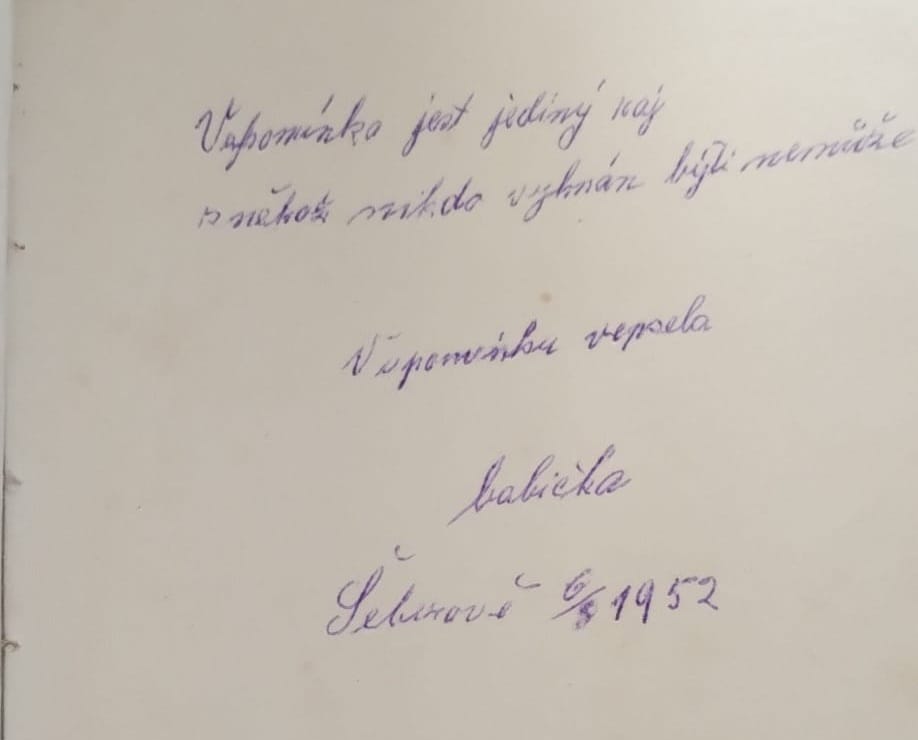 Vzpomínka jest jediný ráj
z něhož nikdo vyhnán býti nemůže
Vzpomínku vepsela
babička
6/8 1952